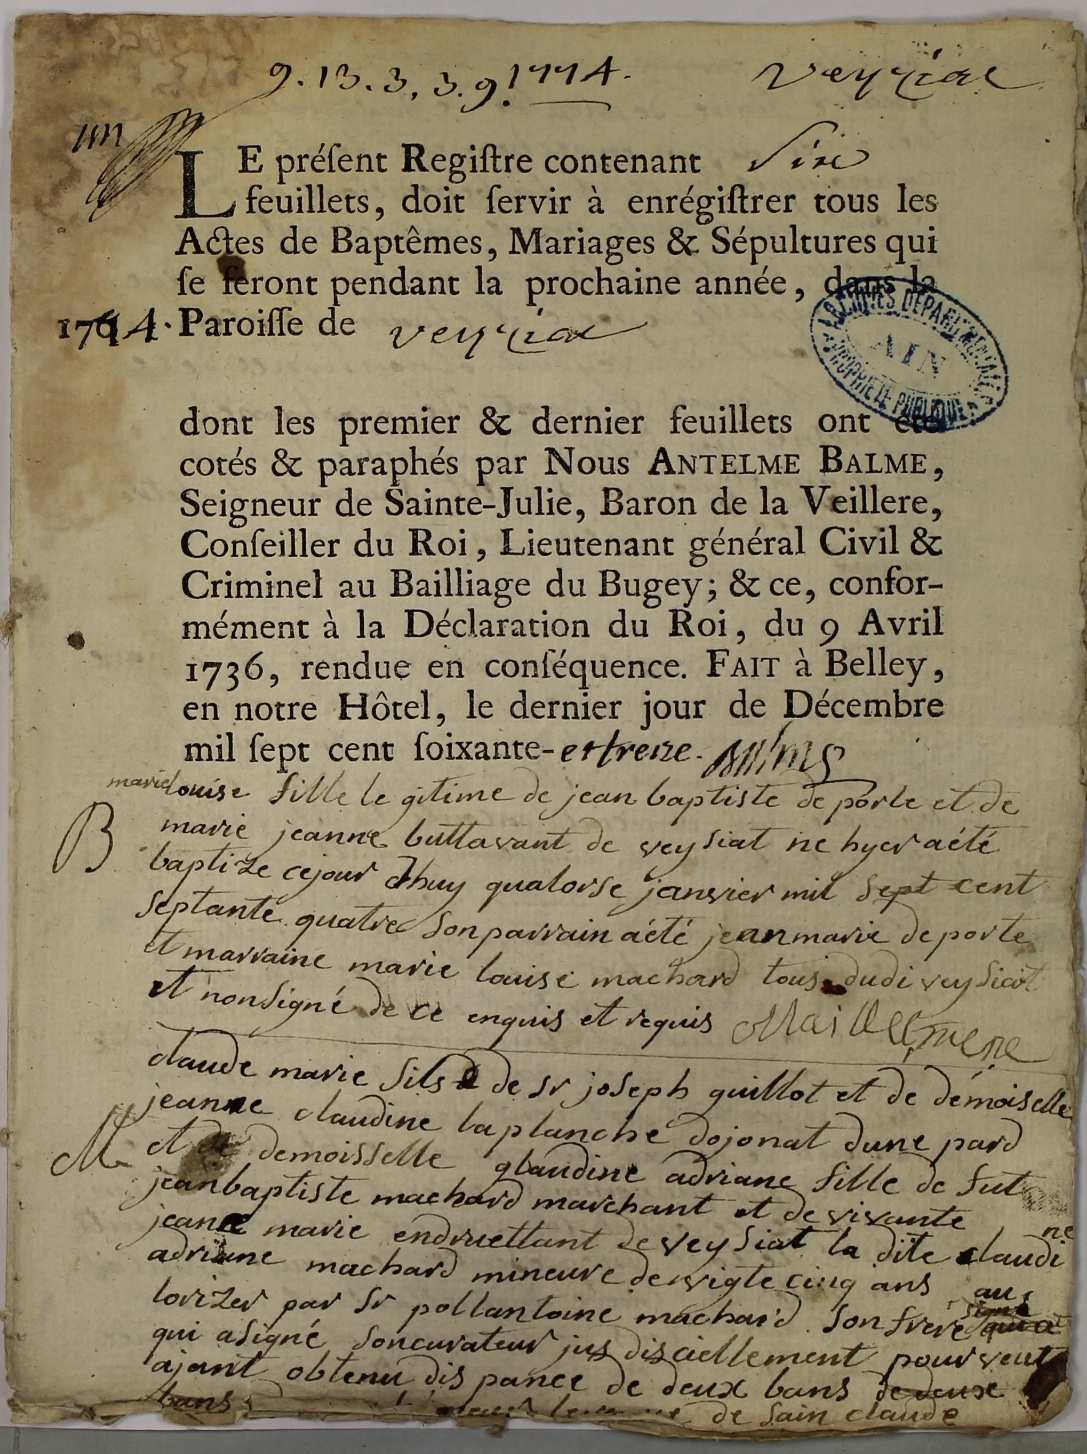 9. 13. 3. 3. 9. 1774. Veyziat
LE préſent Regiſtre contenant Six
feuillets, doit ſervir à enrégiſtrer tous les
Actes de Baptêmes, Mariages & Sépultures qui
ſe feront pendant la prochaine année, dans la
1774. Paroiſſe de veyziat
ARCHIVES DEPARTEMENTALES
AIN
PROPRIETE PUBLIQUE
dont les premier & dernier feuillets ont été
cotés & paraphés par Nous ANTELME BALME,
Seigneur de Sainte-Julie, Baron de la Veillere,
Conſeiller du Roi, Lieutenant général Civil &
Criminel au Bailliage du Bugey; & ce, confor-
mément à la Déclaration du Roi, du 9 Avril
1736, rendue en conſéquence. FAIT à Belley,
en notre Hôtel, le dernier jour de Décembre
mil ſept cent ſoixante-et treze.
marie louise fille le gitime de jean baptiste de porte et de
B marie jeanne buttavant de veysiat ne hyer aété
baptize cejour dhuy quatorse janvier mil sept cent
septante quatre son parrain aété jeanmarie deporte
et marraine marie louise machard tous dudi veysiat
et nonsigné de ce enquis et requis
claude marie fils de sr joseph guillot et de démoiselle
jeanne claudine laplanche dojonat dune pard
M et de demoisselle glaudine adriane fille de fut
jeanbaptiste machard marchant et devivante
jeane marie endruettant de veysiat la dite claudi ne
adriane machard mineure de vigte cinq ans au
lorizer par sr pollantoine machard son frere
qui asigné soncurateur jus disciellement pourveut
ajant obtenu dis pance de deux bans de deux
bans de sain claude